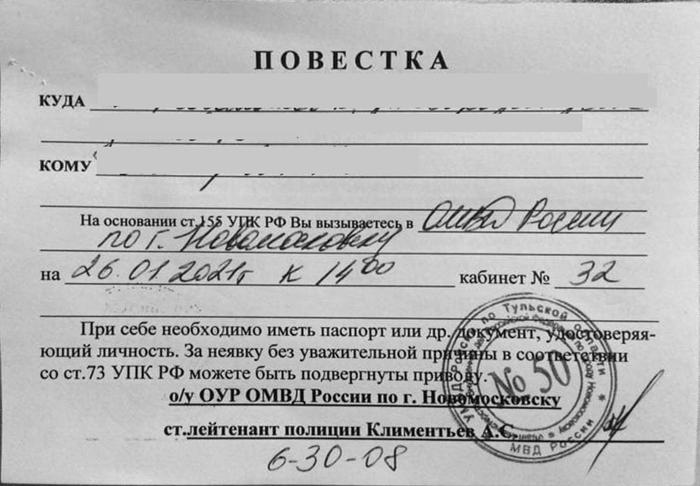 ПОВЕСТКА
КУДА
КОМУ
На основании ст.155 УПК РФ Вы вызываетесь в ОМВД России
по г. Новомосковску
на 26.01.2021г к 14 00 кабинет № 32
При себе необходимо иметь паспорт или др. документ, удостоверя-
ющий личность. За неявку без уважительной причины в соответствии
со ст.73 УПК РФ можете быть подвергнуты приводу.
о/у ОУР ОМВД России по г. Новомосковску
ст.лейтенант полиции Климентьев А.С.
6-30-08
УМВД России по Тульской области
№ 50
МВД России